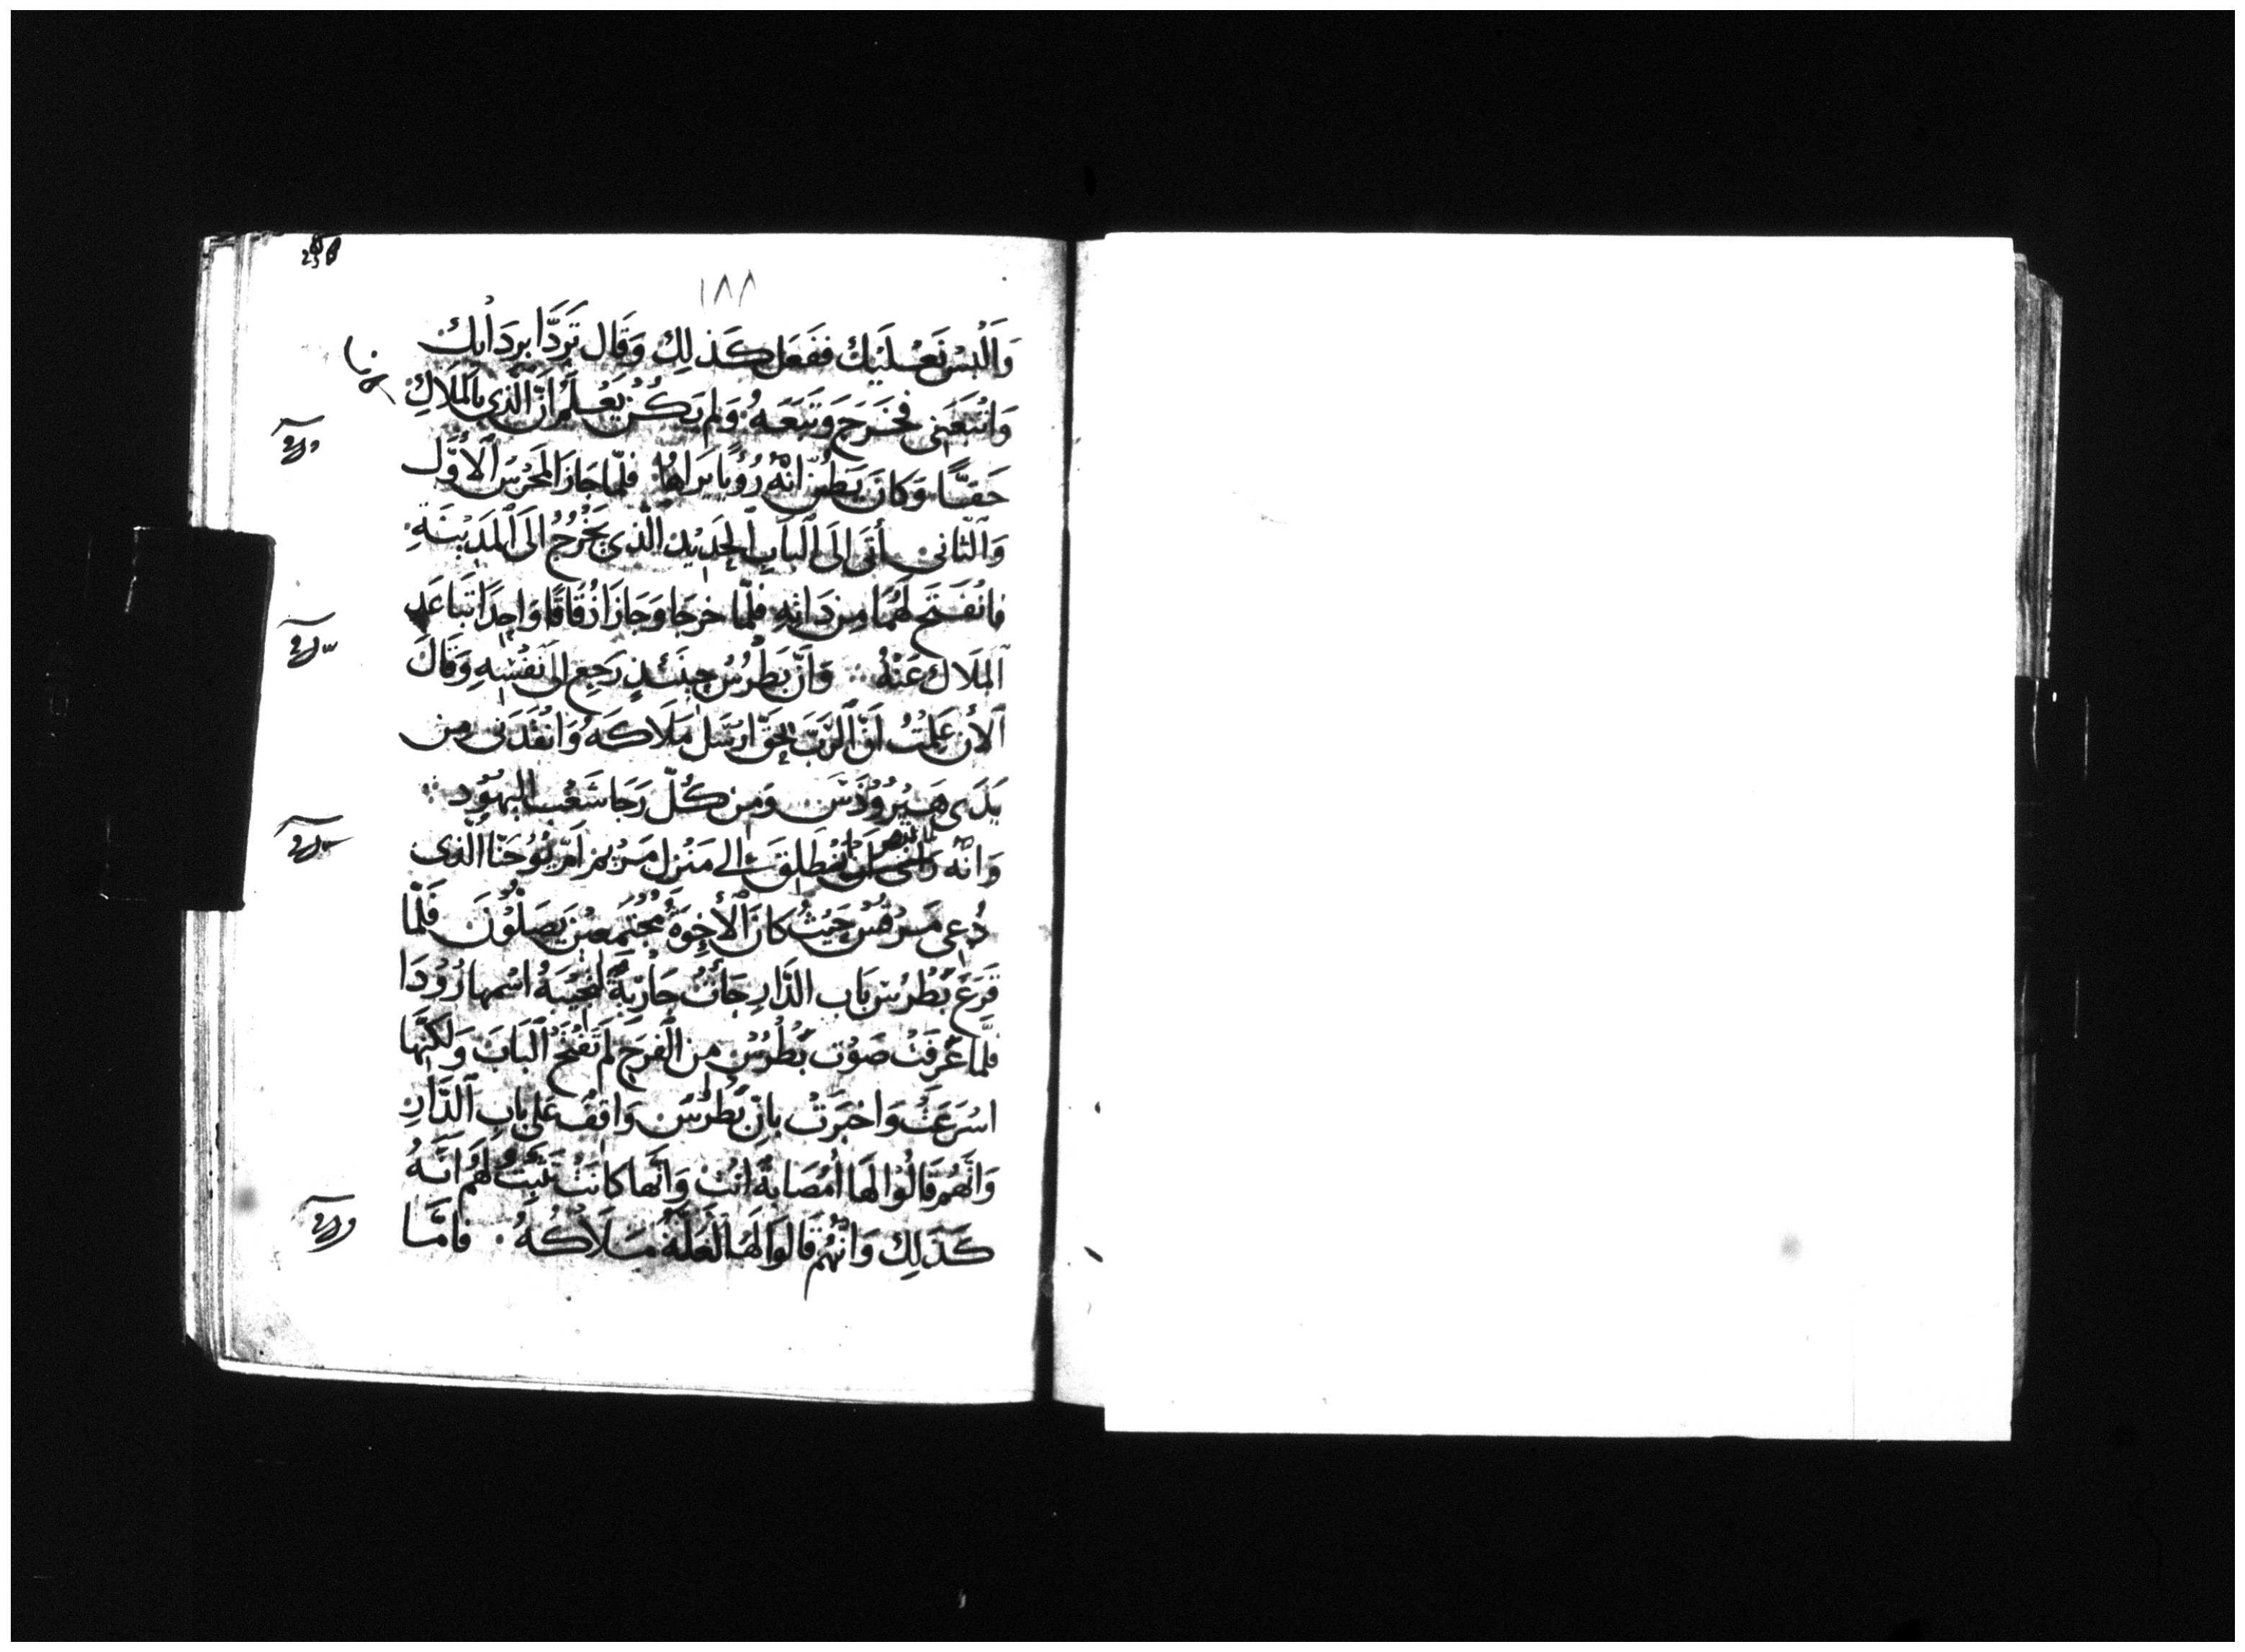 ١٨٨
وَالْبِسْ نَعْلَيْكَ فَفَعَل كَذلِكَ وَقَال تَرَدَّا بِرِدَايِك
وَاتْبَعَنِي فَخَرَجَ وَتَبَعَهُ وَلَم يَكُنْ يَعْلَمُ اَنَّ الَّذِي بِالمَلَاكِ
حَقًّا وَكَانَ يَظُنّ اَنَّهُ رُويًا يَرَاهَا فَلمّا جَازَ المَحْرَسَ الأَوَّل
وَالثّانِي أتَى اِلَى البَابِ الحَدِيْدِ الّذِي يَخْرُجُ اِلَى المَدِيْنَةِ
فانْفَتَحَ لَهُمَا مِن ذَاتِهِ فلَمّا خرجَا وَجَازَا زُقَاقًا وَاحِدًا تَباعَد
المَلَاك عَنْهُ وَاَنّ بَطْرُسُ حِيْنَئذٍ رَجعَ الَى نَفْسِهِ وَقَالَ
الأن عَلِمْتُ اَنَّ الرَّبَّ بِالحَقّ ارسَل مَلَاكَهُ وَانقَذَنِي مِن
يَدَي هِيْرُوُدَسَ وَمِن كُلّ رَجَا شَعْب اليَهُوْد
وَانَّهُ انْطَلَقَ الى مَنْزِل مَرْيم اُمّ يُوْحَنّا الّذِي
دُعِي مَرْقُسْ حَيْثُ كانَ الأُخِوَةُ مُجْتَمِعِيْن يَصَلُّوْنَ فَلَمّا
قَرَعَ بُطْرُسْ بَاب الدَّارِ جَائت جَارْيَةٌ لتُجِيْبَهُ اسْمها رُوُدَا
فلَمّا عَرفَتْ صَوْت بُطْرُسْ مِن الفَرَح لَم تَفْتَحْ البَابَ وَلكِنَّها
اسْرَعَتْ وَاخبَرَتْ بِانّ بُطْرُسَ وَاقِفٌ عَلى بَابِ الدَّارِ
وَانَّهُم قَالُوْا لَهَا اُمُصَابَةٌ انْتْ وَانَّها كانَتْ تُثَبِّتُ لَهُم انَّهُ
كَذَلِكَ وَانَّهُم قَالَوَا لَهَا لَعَلَّهُ مَلَاكُهُ فامَّا